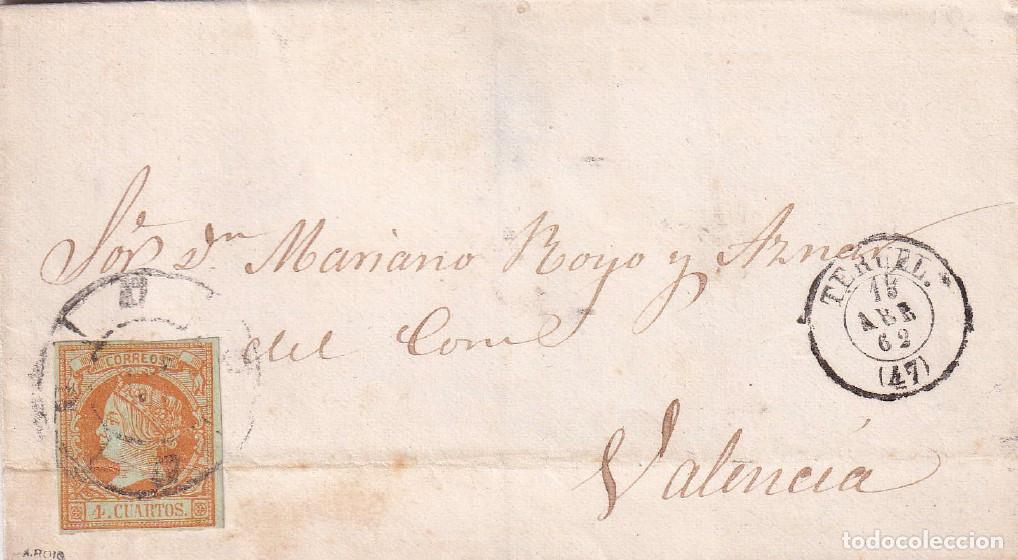 Sór. Dn. Mariano Royo y Aznar
del Comº
Valencia
TERUEL.
15
ABR
62
(47)
CORREOS
4. CUARTOS.
A.ROIG
todocoleccion